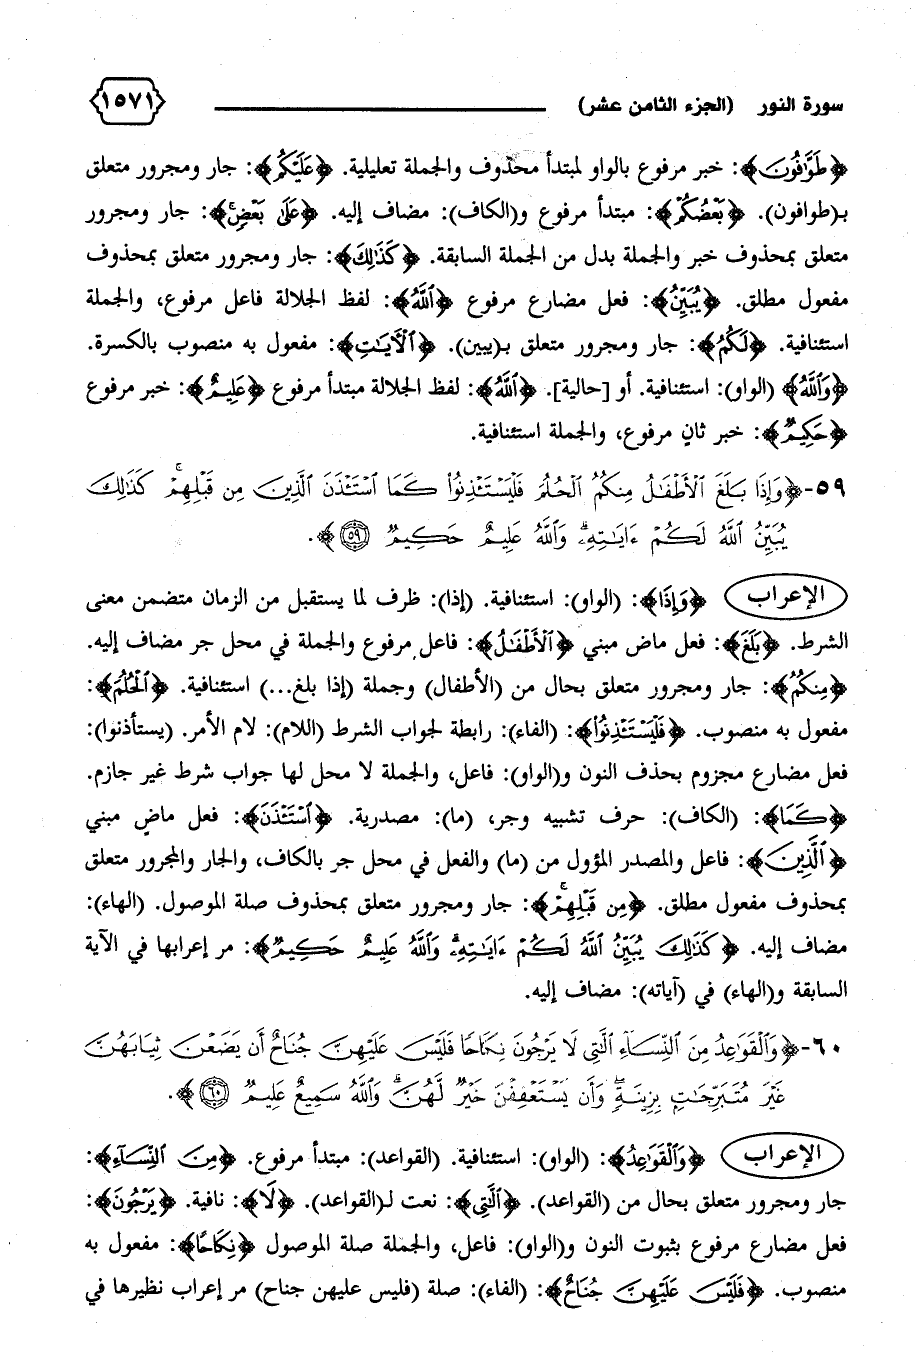 سورة النور (الجزء الثامن عشر) ١٥٧١
﴿طَوَّافُونَ﴾: خبر مرفوع بالواو لمبتدأ محذوف والجملة تعليلية. ﴿عَلَيْكُمْ﴾: جار ومجرور متعلق
بـ(طوافون). ﴿بَعْضُكُمْ﴾: مبتدأ مرفوع و(الكاف): مضاف إليه. ﴿عَلَى بَعْضٍ﴾: جار ومجرور
متعلق بمحذوف خبر والجملة بدل من الجملة السابقة. ﴿كَذَٰلِكَ﴾: جار ومجرور متعلق بمحذوف
مفعول مطلق. ﴿يُبَيِّنُ﴾: فعل مضارع مرفوع ﴿اللَّهُ﴾: لفظ الجلالة فاعل مرفوع، والجملة
استئنافية. ﴿لَكُمُ﴾: جار ومجرور متعلق بـ(يبين). ﴿الْآيَاتِ﴾: مفعول به منصوب بالكسرة.
﴿وَاللَّهُ﴾ (الواو): استئنافية. أو [حالية]. ﴿اللَّهُ﴾: لفظ الجلالة مبتدأ مرفوع ﴿عَلِيمٌ﴾: خبر مرفوع
﴿حَكِيمٌ﴾: خبر ثانٍ مرفوع، والجملة استئنافية.
٥٩-﴿وَإِذَا بَلَغَ الْأَطْفَالُ مِنكُمُ الْحُلُمَ فَلْيَسْتَـْٔذِنُوا كَمَا اسْتَـْٔذَنَ الَّذِينَ مِن قَبْلِهِمْ ۚ كَذَٰلِكَ
يُبَيِّنُ اللَّهُ لَكُمْ ءَايَاتِهِ ۗ وَاللَّهُ عَلِيمٌ حَكِيمٌ ٥٩﴾.
الإعراب ﴿وَإِذَا﴾: (الواو): استئنافية. (إذا): ظرف لما يستقبل من الزمان متضمن معنى
الشرط. ﴿بَلَغَ﴾: فعل ماض مبني ﴿الْأَطْفَالُ﴾: فاعل مرفوع والجملة في محل جر مضاف إليه.
﴿مِنكُمُ﴾: جار ومجرور متعلق بحال من (الأطفال) وجملة (إذا بلغ...) استئنافية. ﴿الْحُلُمَ﴾:
مفعول به منصوب. ﴿فَلْيَسْتَـْٔذِنُوا﴾: (الفاء): رابطة لجواب الشرط (اللام): لام الأمر. (يستأذنوا):
فعل مضارع مجزوم بحذف النون و(الواو): فاعل، والجملة لا محل لها جواب شرط غير جازم.
﴿كَمَا﴾: (الكاف): حرف تشبيه وجر، (ما): مصدرية. ﴿اسْتَـْٔذَنَ﴾: فعل ماضٍ مبني
﴿الَّذِينَ﴾: فاعل والمصدر المؤول من (ما) والفعل في محل جر بالكاف، والجار والمجرور متعلق
بمحذوف مفعول مطلق. ﴿مِن قَبْلِهِمْ ۚ﴾: جار ومجرور متعلق بمحذوف صلة الموصول. (الهاء):
مضاف إليه. ﴿كَذَٰلِكَ يُبَيِّنُ اللَّهُ لَكُمْ ءَايَاتِهِ ۗ وَاللَّهُ عَلِيمٌ حَكِيمٌ﴾: مر إعرابها في الآية
السابقة و(الهاء) في (آياته): مضاف إليه.
٦٠-﴿وَالْقَوَاعِدُ مِنَ النِّسَاءِ الَّتِي لَا يَرْجُونَ نِكَاحًا فَلَيْسَ عَلَيْهِنَّ جُنَاحٌ أَن يَضَعْنَ ثِيَابَهُنَّ
غَيْرَ مُتَبَرِّجَاتٍ بِزِينَةٍ ۖ وَأَن يَسْتَعْفِفْنَ خَيْرٌ لَّهُنَّ ۗ وَاللَّهُ سَمِيعٌ عَلِيمٌ ٦٠﴾.
الإعراب ﴿وَالْقَوَاعِدُ﴾: (الواو): استئنافية. (القواعد): مبتدأ مرفوع. ﴿مِنَ النِّسَاءِ﴾:
جار ومجرور متعلق بحال من (القواعد). ﴿الَّتِي﴾: نعت لـ(القواعد). ﴿لَا﴾: نافية. ﴿يَرْجُونَ﴾:
فعل مضارع مرفوع بثبوت النون و(الواو): فاعل، والجملة صلة الموصول ﴿نِكَاحًا﴾: مفعول به
منصوب. ﴿فَلَيْسَ عَلَيْهِنَّ جُنَاحٌ﴾: (الفاء): صلة (فليس عليهن جناح) مر إعراب نظيرها في